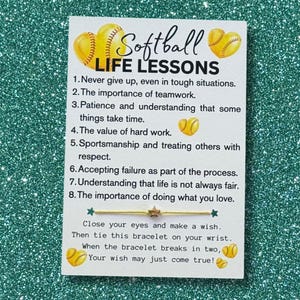 Softball
LIFE LESSONS
1. Never give up, even in tough situations.
2. The importance of teamwork.
3. Patience and understanding that some
things take time.
4. The value of hard work.
5. Sportsmanship and treating others with
respect.
6. Accepting failure as part of the process.
7. Understanding that life is not always fair.
8. The importance of doing what you love.
Close your eyes and make a wish.
Then tie this bracelet on your wrist.
When the bracelet breaks in two,
Your wish may just come true!